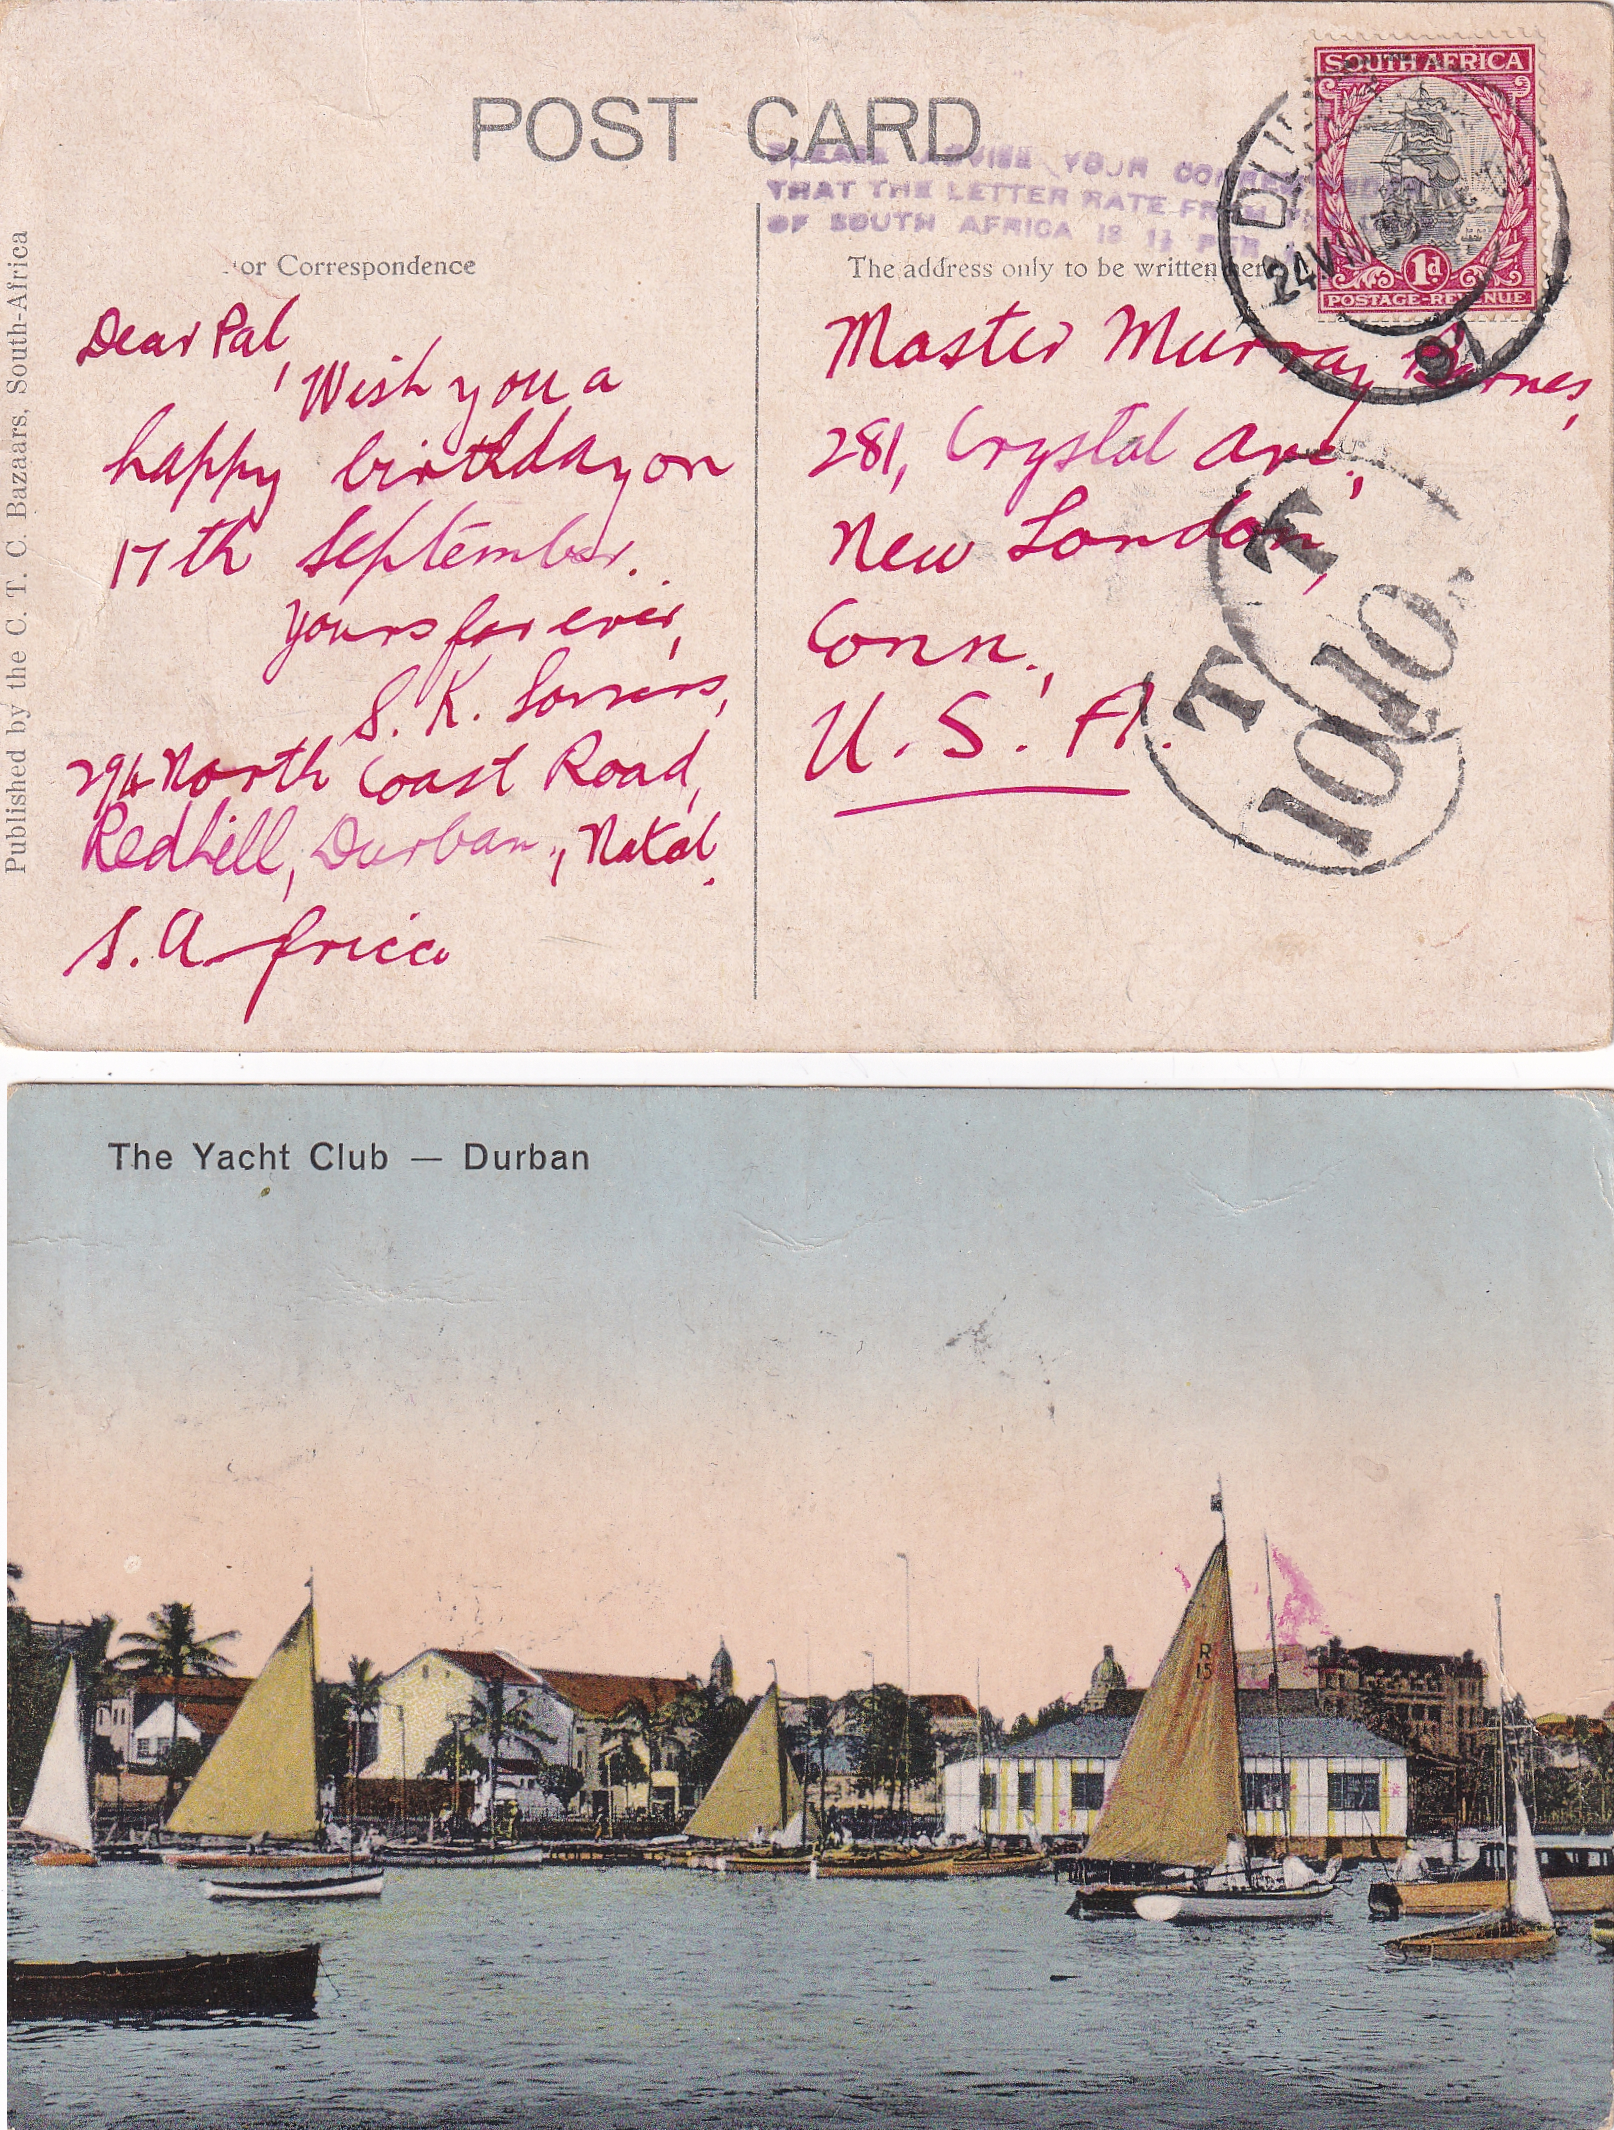 POST CARD
PLEASE ADVISE YOUR
THAT THE LETTER RATE FROM
OF SOUTH AFRICA IS 1½ PER
SOUTH AFRICA
1d
POSTAGE-REVENUE
24 VIII
or Correspondence
The address only to be written here
Published by the C. T. C. Bazaars, South-Africa
Dear Pal,
Wish you a
happy birthday on
17th September.
Yours for ever,
S. K.
294 North Coast Road,
Redhill, Durban, Natal.
S. Africa
Master Murray Barnes,
281, Crystal Ave,
New London,
Conn.,
U. S. A.
T
10
T
10
The Yacht Club — Durban
R
15